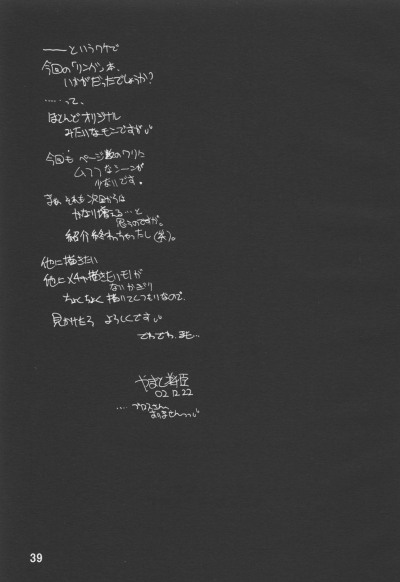 ――というワケで
今回の「リング」本、
いかがだったでしょうか?
……って、
ほとんどオリジナル
みたいなモンですが
今回も ページ数のワリに
ムフフなシーンが
少ないです。
まあ それも次回からは
かなり増える…と
思うのですが。
紹介が終わっちゃったし(笑)。
他に描きたい
他にメチャ描きたいモノが
ないかぎり
ちょくちょく描いてくつもりなので、
見かけたら よろしくです
でわでわ、また…
02.12.22
すみませんっっ
39